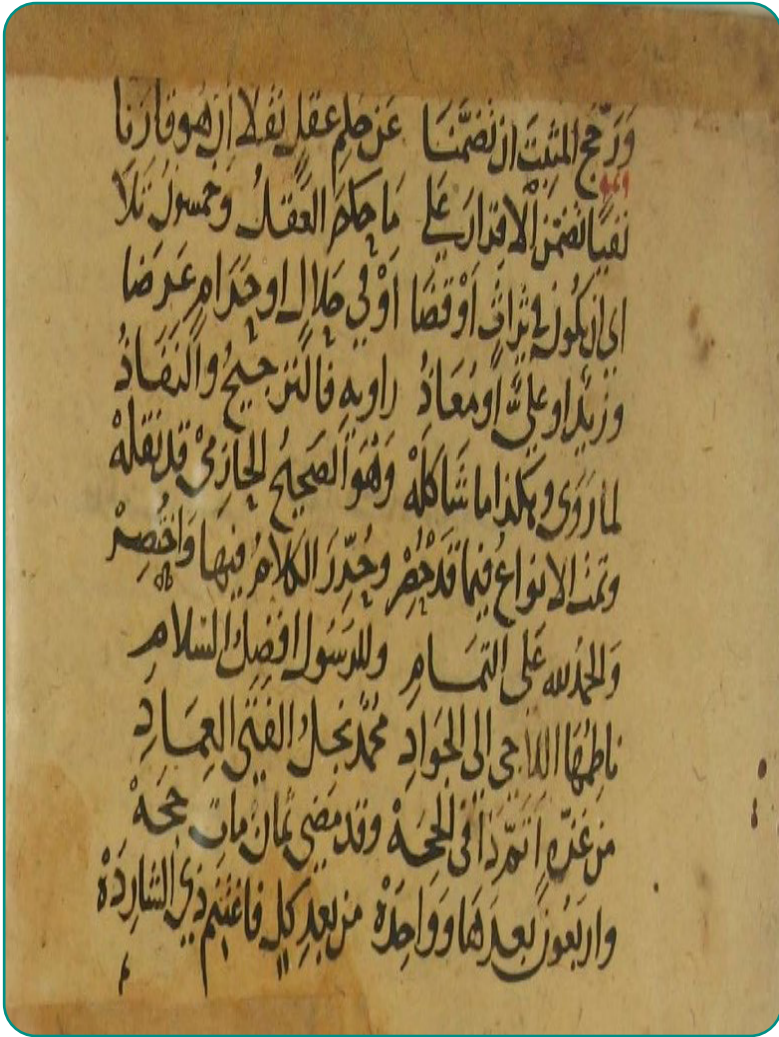 وَرَجِّحِ المثبَتَ ان تضمَّنَا عَن حكمِ عقلٍ نقلا ان هُو قارنا
نفيًا تضمن الاقدار على مَا حكم العَقلُ وخمسون تلَا
اي ان يكون في تراثٍ أَوْ قضَا أَوْ في حلال او حرام عَرضا
وزيد او عليٌّ او مُعَاذُ راويه فالترجيحُ والنَفَاذُ
لما رَوَى وهكذا ما شاكلَهْ وَهْوَ الصَحيحُ الحازميْ قد نقلهْ
وتمت الانواعُ فيما قَدْ حُصِرْ وحُرِّرَ الكلامُ فيهَا وَاخْتُصِرْ
وَالحمدُ لله عَلى التمَامِ وللرسُول افضلُ السّلامِ
ناظمُهَا اللاجي الى الجَوادِ محمّد نجلُ الفَتَى العِمَادِ
من غزّهِ أتمّ ذا في الحِجهْ وقد مَضى ثمان مات حِجهْ
واربَعُونَ بَعدهَا وَوَاحِدَهْ من بعدِ كلٍ فاغتنم ذي الشارِدَهْ
م